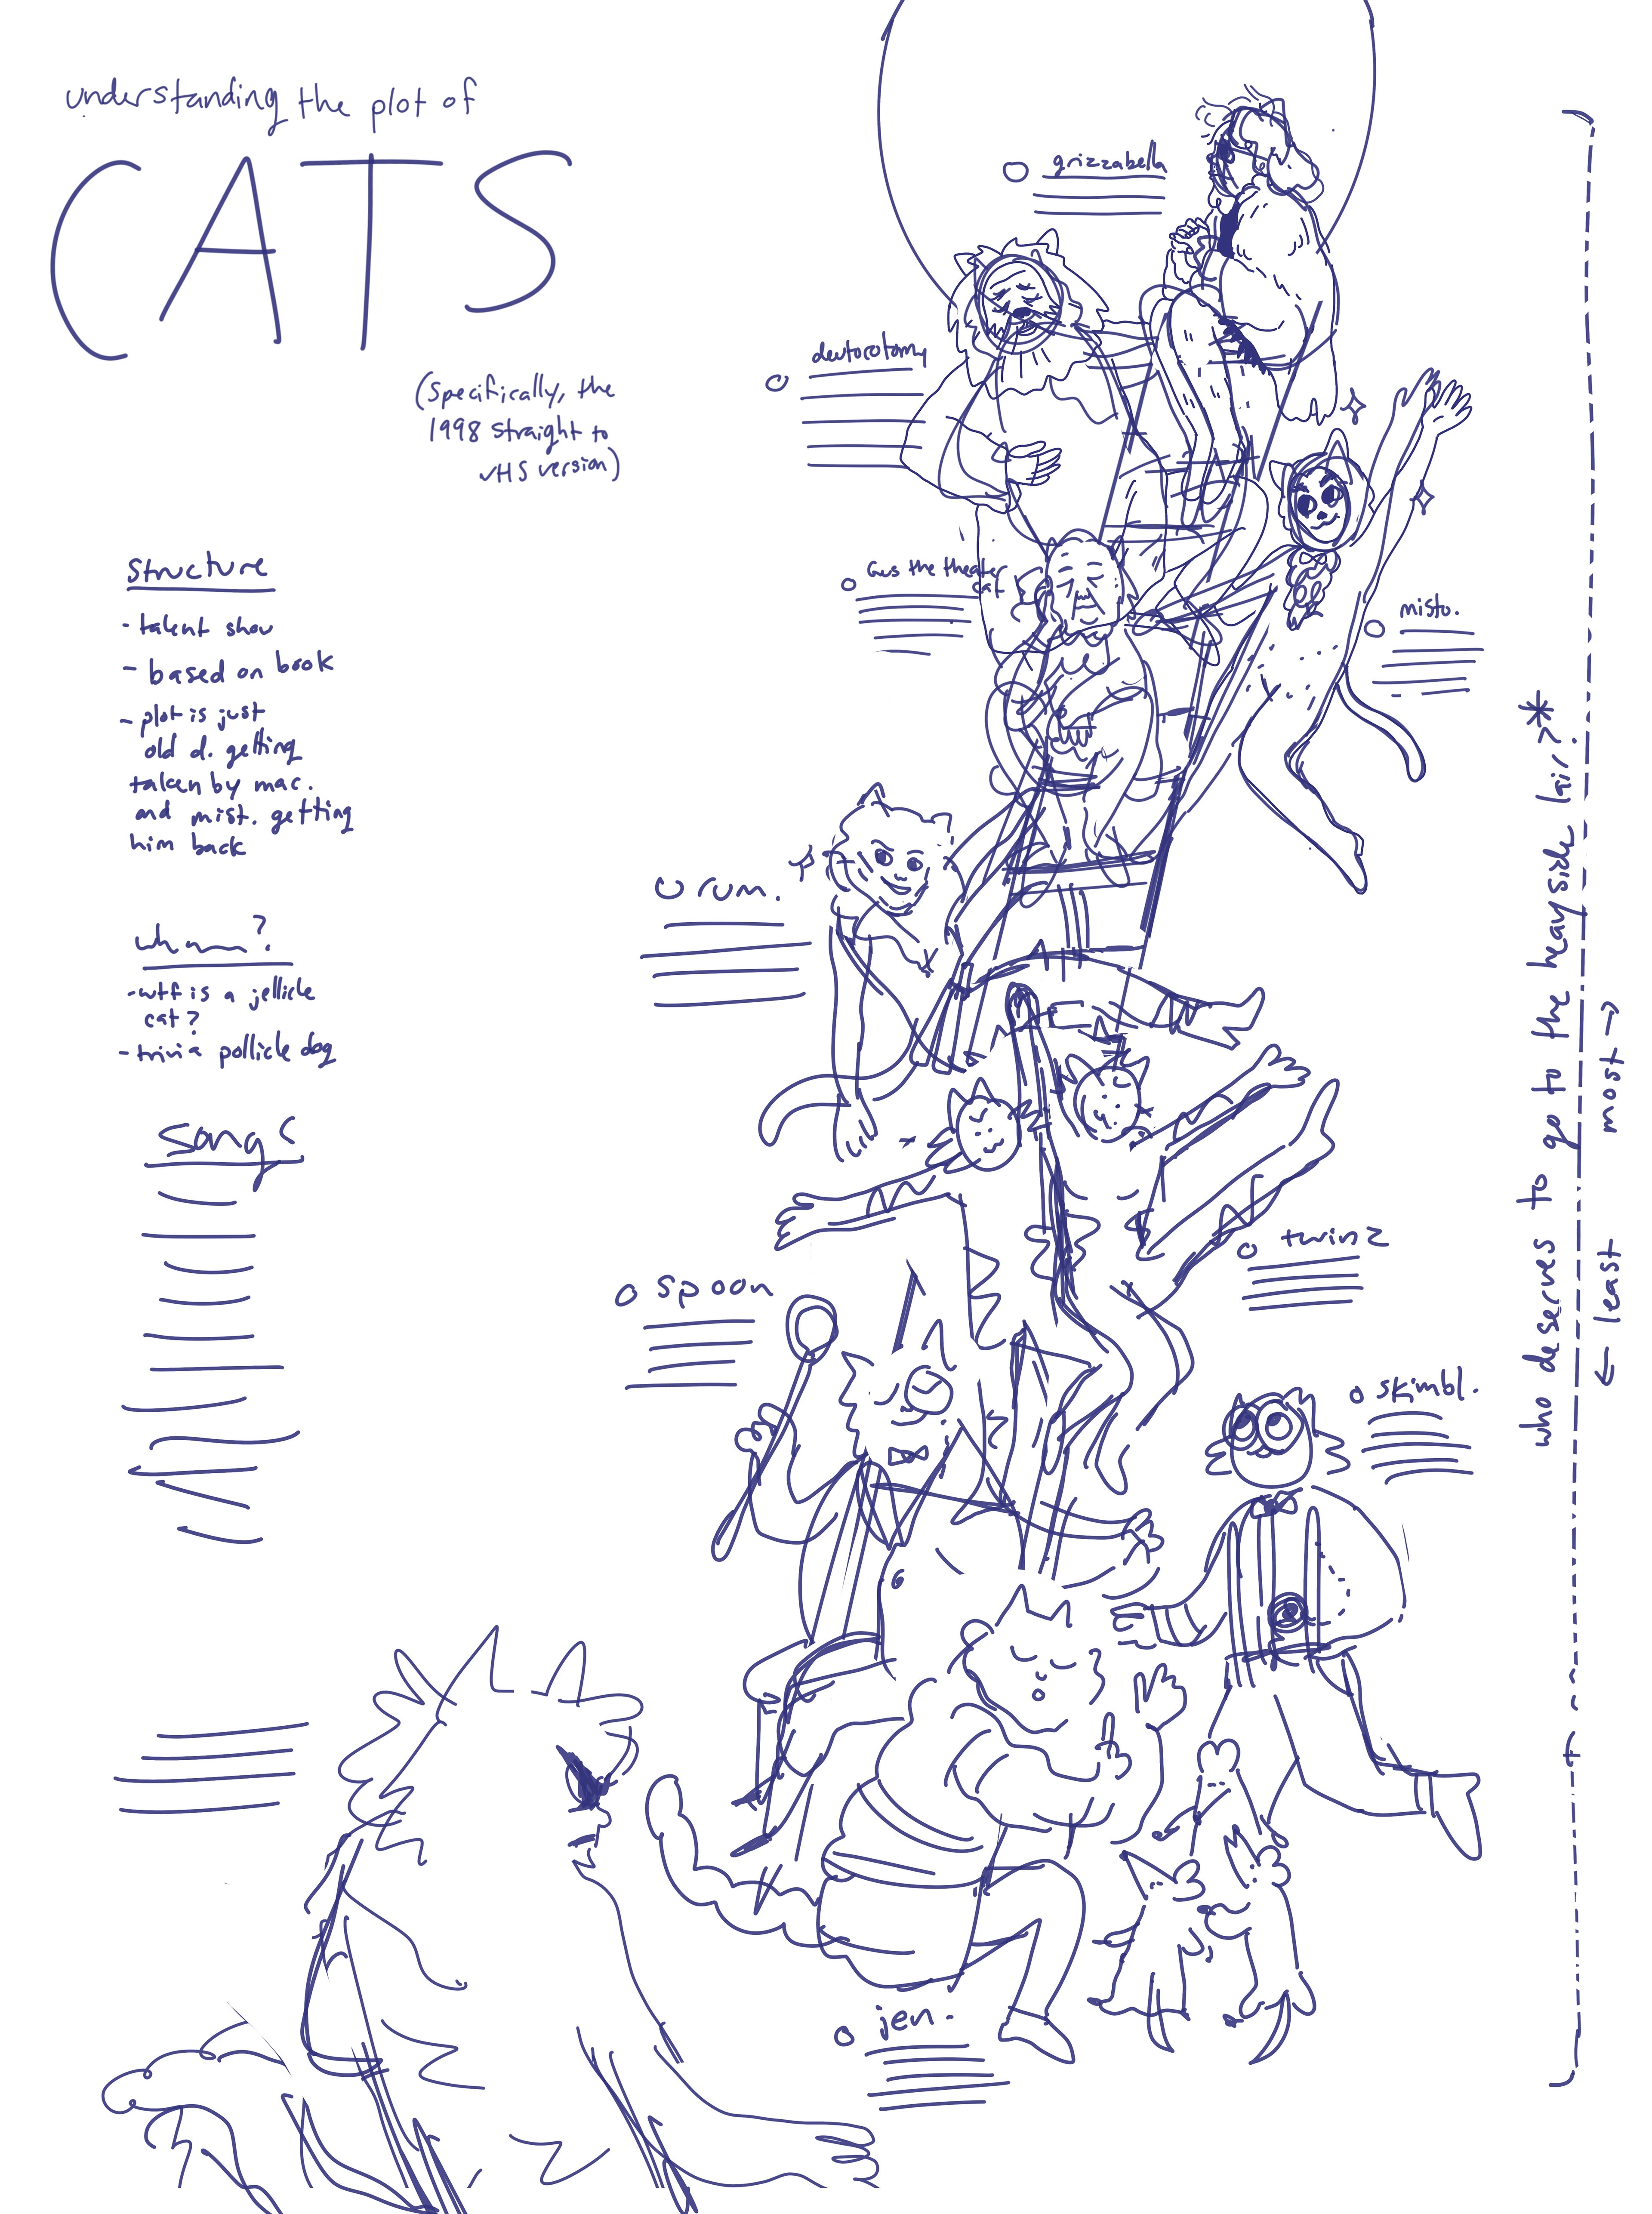 understanding the plot of
CATS
(specifically, the
1998 straight to
VHS version)
structure
- talent show
- based on book
- plot is just
old d. getting
taken by mac.
and mist. getting
him back
wh ?
- wtf is a jellicle
cat?
- trivia pollicle dog
songs
grizzabella
deutorotomy
Gus the theater
cat
misto.
rum.
twinz
spoon
skimbl.
jen.
who deserves to go to the heavyside lair?*
← least most →